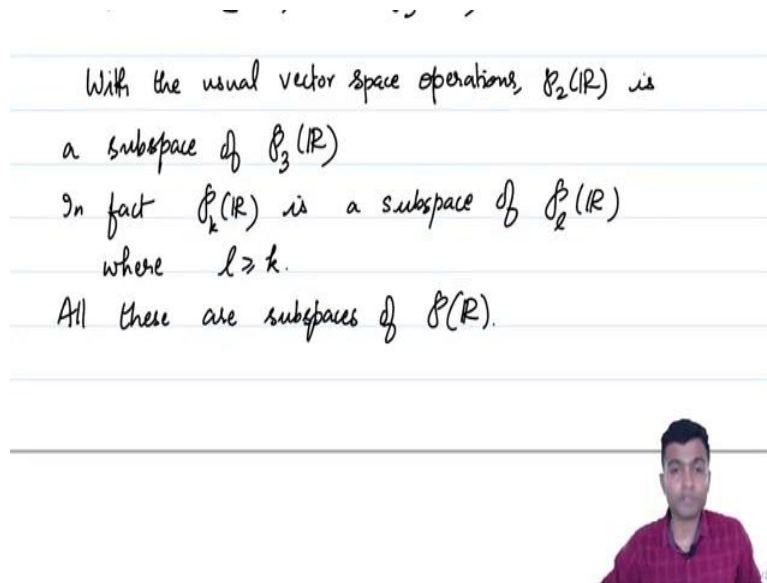 With the usual vector space operations, P₂(ℝ) is
a subspace of P₃(ℝ)
In fact Pₖ(ℝ) is a subspace of Pₗ(ℝ)
where l ≥ k.
All these are subspaces of P(ℝ).